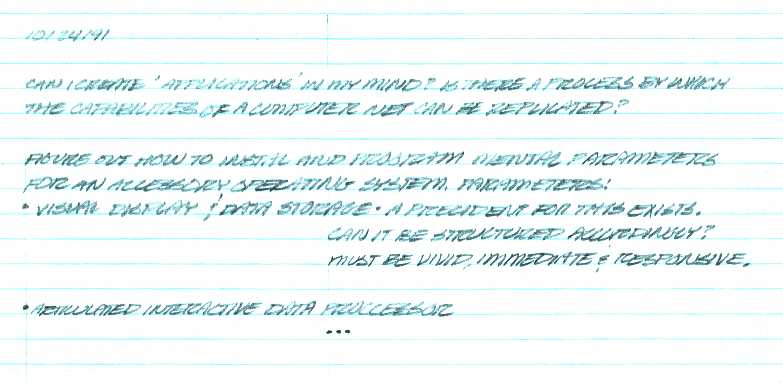 10/24/91
CAN I CREATE 'APPLICATIONS' IN MY MIND? IS THERE A PROCESS BY WHICH
THE CAPABILITIES OF A COMPUTER NET CAN BE REPLICATED?
FIGURE OUT HOW TO INSTALL AND PROGRAM MENTAL PARAMETERS
FOR AN ACCESSORY OPERATING SYSTEM. PARAMETERS:
• VISUAL DISPLAY & DATA STORAGE • A PRECIDENT FOR THIS EXISTS.
CAN IT BE STRUCTURED ACCORDINGLY?
MUST BE VIVID, IMMEDIATE & RESPONSIVE.
• ARTICULATED INTERACTIVE DATA PROCCESSOR
...